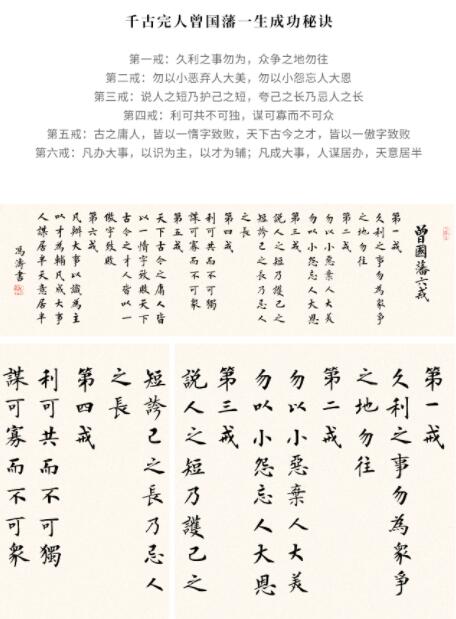 千古完人曾国藩一生成功秘诀
第一戒：久利之事勿为，众争之地勿往
第二戒：勿以小恶弃人大美，勿以小怨忘人大恩
第三戒：说人之短乃护己之短，夸己之长乃忌人之长
第四戒：利可共不可独，谋可寡不可众
第五戒：古之庸人，皆以一惰字致败，天下古今之才，皆以一傲字致败
第六戒：凡办大事，以识为主，以才为辅；凡成大事，人谋居办，天意居半
曾國藩六戒
第一戒
久利之事勿為衆爭
之地勿往
第二戒
勿以小惡棄人大美
勿以小怨忘人大恩
第三戒
説人之短乃護己之
短誇己之長乃忌人
之長
第四戒
利可共而不可獨
謀可寡而不可衆
第五戒
天下古今之庸人皆
以一惰字致敗天下
古今之才人皆以一
傲字致敗
第六戒
凡辦大事以識為主
以才為輔凡成大事
人謀居半天意居半
馮濤書
第一戒
久利之事勿為衆爭
之地勿往
第二戒
勿以小惡棄人大美
勿以小怨忘人大恩
第三戒
説人之短乃護己之
短誇己之長乃忌人
之長
第四戒
利可共而不可獨
謀可寡而不可衆